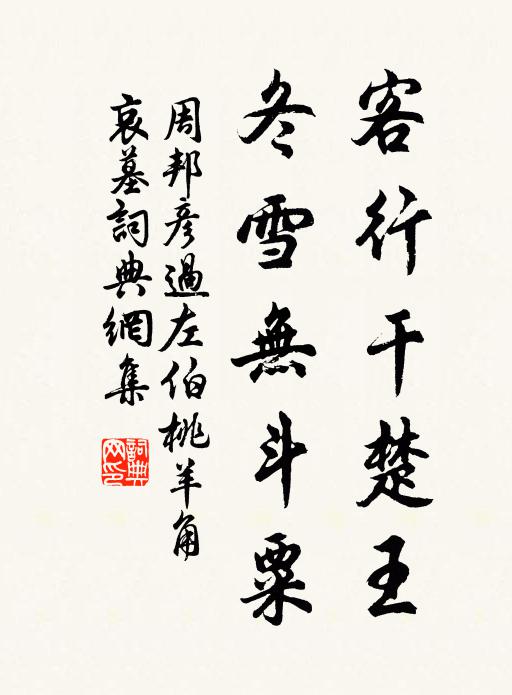 客行干楚王
冬雪無斗粟
周邦彦過左伯桃羊角
哀墓詞典網集
詞典
网印